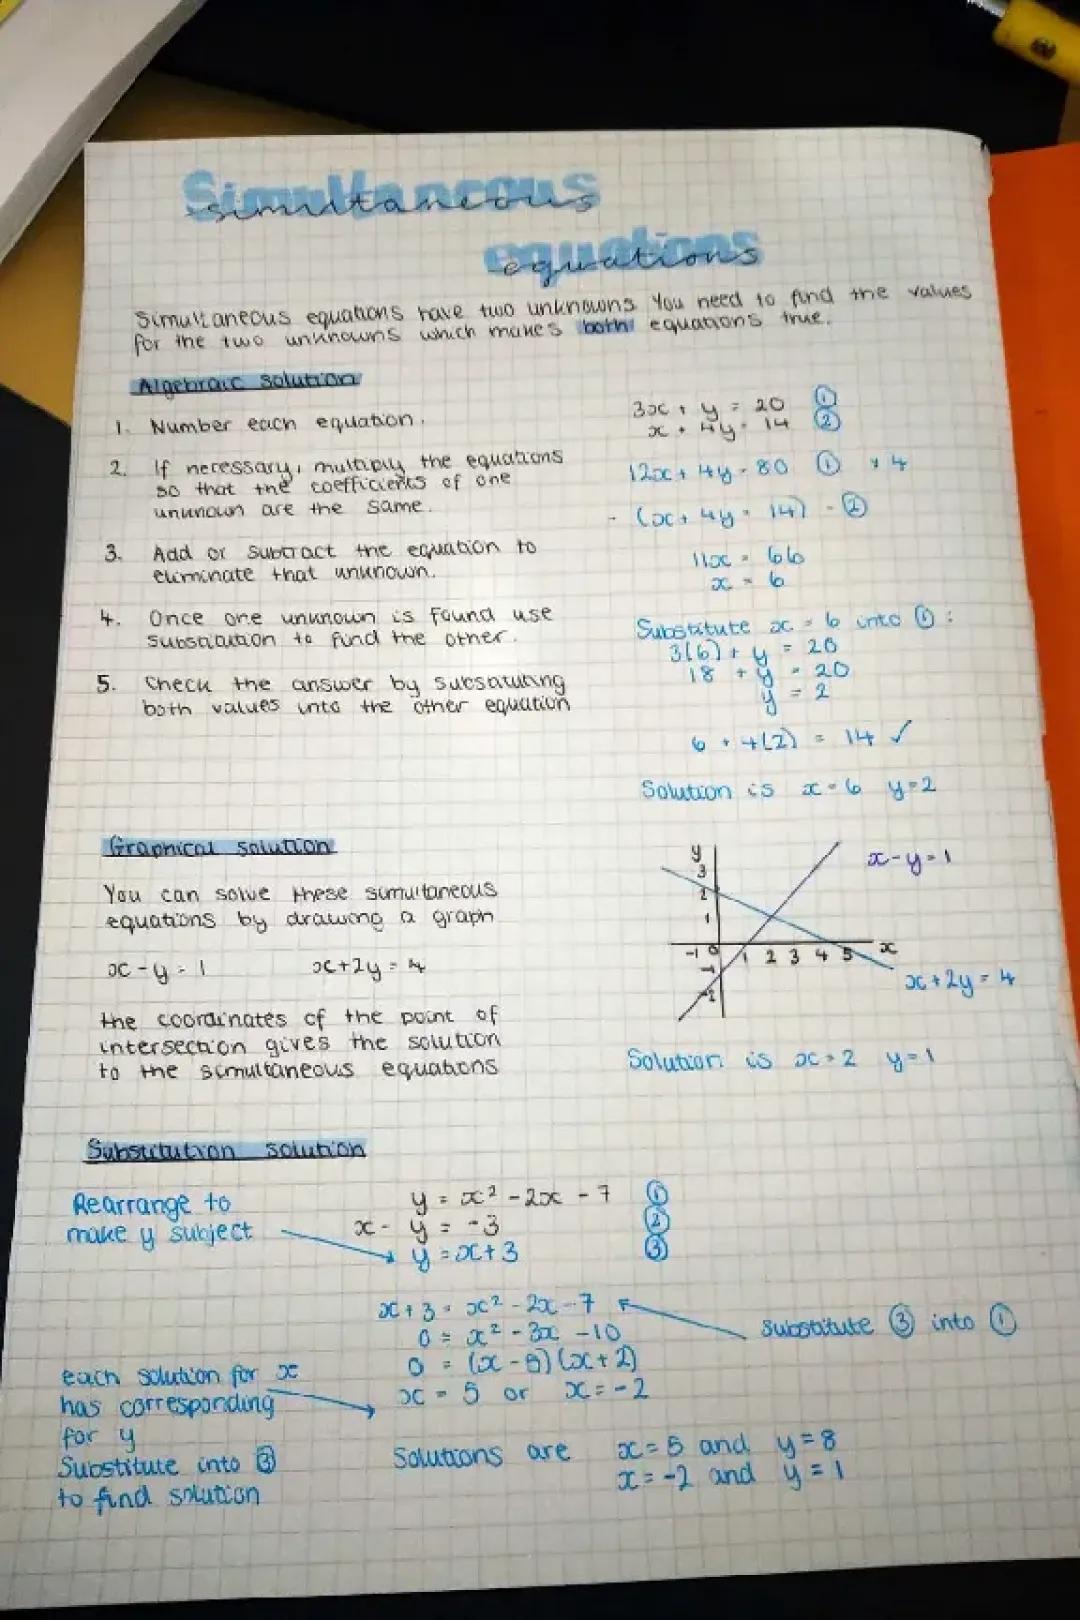 Simultaneous
simultaneous
equations
equations
Simultaneous equations have two unknowns. You need to find the values
for the two unknowns which makes both equations true.
Algebraic solution
1. Number each equation.
3x + y = 20 ①
x + 4y = 14 ②
2. If necessary, multiply the equations
so that the coefficients of one
unknown are the same.
12x + 4y = 80 ① × 4
- (x + 4y = 14) - ②
3. Add or subtract the equation to
eliminate that unknown.
11x = 66
x = 6
4. Once one unknown is found use
subsitution to find the other.
Substitute x = 6 into ①:
3(6) + y = 20
18 + y = 20
y = 2
5. Check the answer by subsituting
both values into the other equation
6 + 4(2) = 14 ✓
Solution is x = 6 y = 2
Graphical solution
You can solve these simultaneous
equations by drawing a graph
x - y = 1 x + 2y = 4
the coordinates of the point of
intersection gives the solution
to the simultaneous equations
y
3
2
1
-1 0 1 2 3 4 5 x
-1
-2
x - y = 1
x + 2y = 4
Solution is x = 2 y = 1
Substitution solution
Rearrange to
make y subject
y = x² - 2x - 7 ①
x - y = -3 ②
y = x + 3 ③
x + 3 = x² - 2x - 7
0 = x² - 3x - 10
0 = (x - 5)(x + 2)
x = 5 or x = -2
substitute ③ into ①
each solution for x
has corresponding
for y
Substitute into ③
to find solution
Solutions are x = 5 and y = 8
x = -2 and y = 1